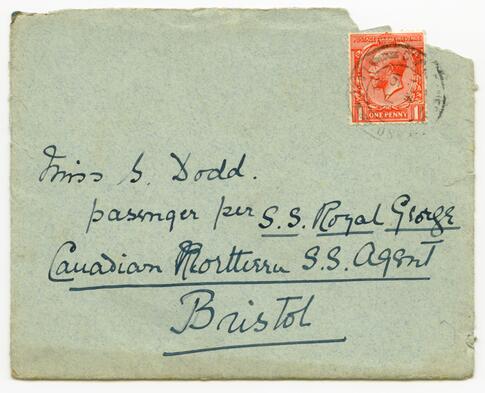 POSTAGE REVENUE
1 ONE PENNY 1
Miss G. Dodd.
passenger per S.S. Royal George
Canadian Northern S.S. Agent
Bristol